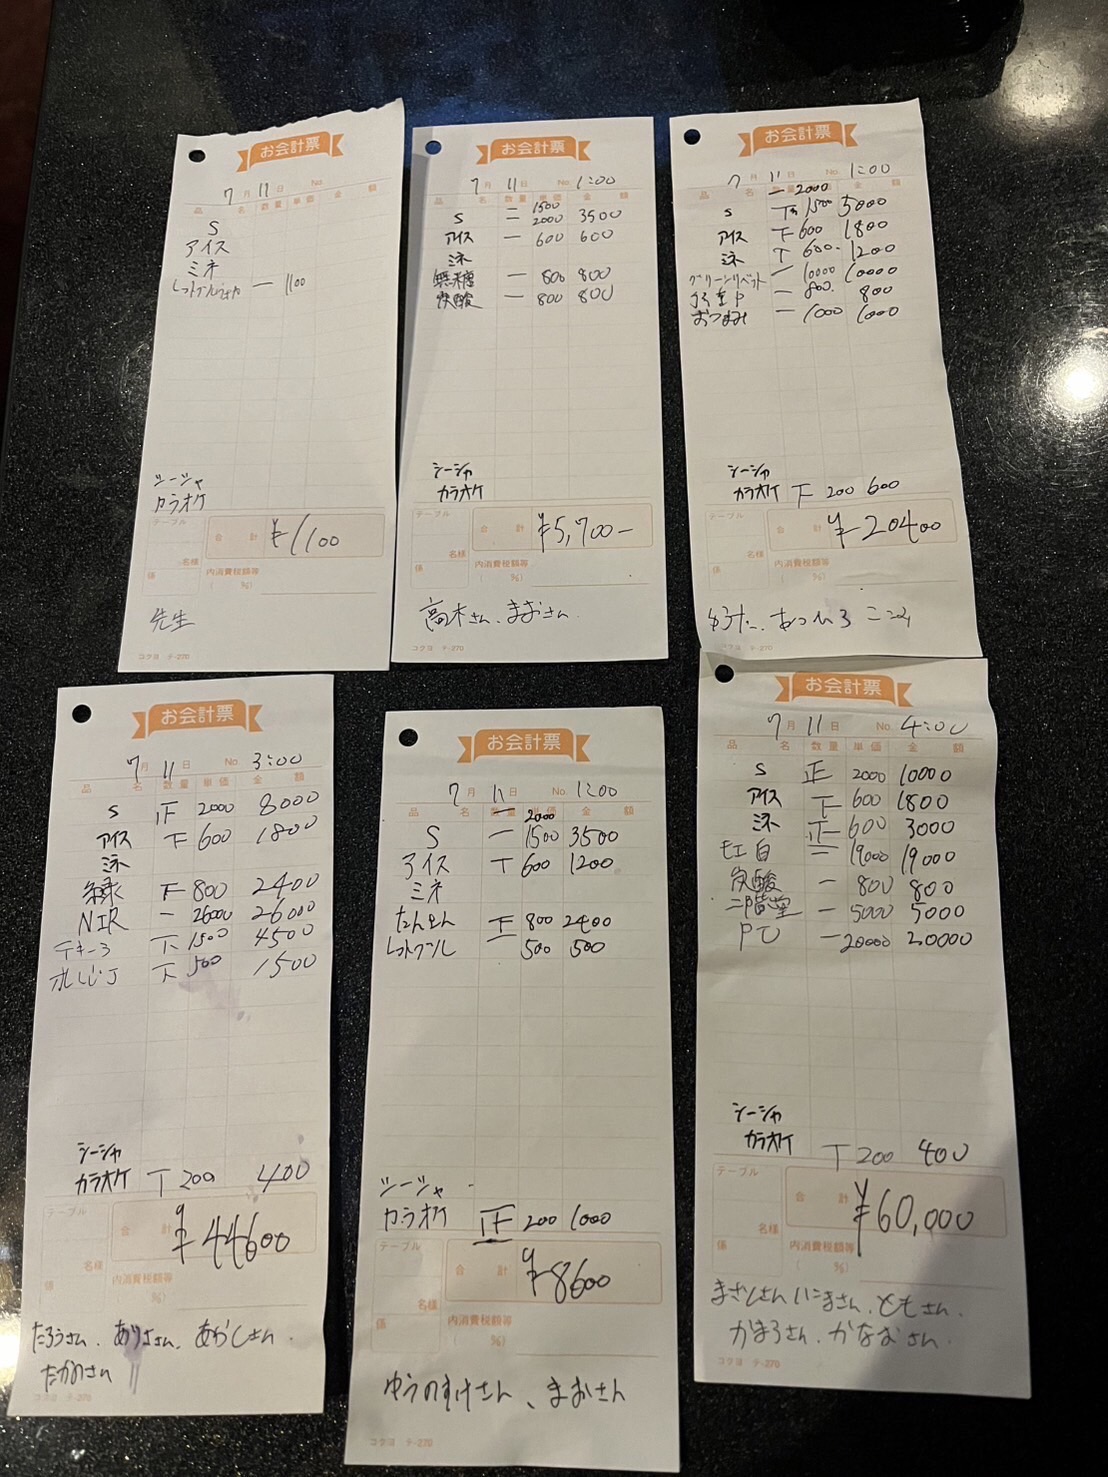 お会計票
7月 11日 No.
品 名 数量 単価 金 額
S
アイス
ミネ
一 1100
シーシャ
カラオケ
テーブル
合 計 ¥1100
名様
係 内消費税額等
( %)
先生
コクヨ テ-270
お会計票
7月 11日 No. 1:00
品 名 数量 単価 金 額
S 二 1500 2000 3500
アイス 一 600 600
ミネ
無糖 一 800 800
炭酸 一 800 800
シーシャ
カラオケ
テーブル
合 計 ¥5,700-
名様
係 内消費税額等
( %)
高木さん、まおさん
コクヨ テ-270
お会計票
7月 11日 No. 1:00
名 数量 単価 金 額
一 2000
S 1500 5000
アイス 下 600 1800
ミネ T 600 1200
グリーンリベット 一 10000 10000
一 800 800
おつまみ 一 1000 1000
シーシャ
カラオケ 下 200 600
テーブル
合 計 ¥20400
名様
係 内消費税額等
( %)
あつひろ
テ-270
お会計票
7月 11日 No. 3:00
品 名 数量 単価 金 額
S 正 2000 8000
アイス 下 600 1800
ミネ
緑 下 800 2400
NIR 一 26000 26000
テキーラ 下 1500 4500
オレンジJ 下 500 1500
シーシャ
カラオケ T 200 400
テーブル
合 計 ¥44600
名様
係 内消費税額等
( %)
たろうさん、ありささん、あかしさん、
たかのさん
コクヨ テ-270
お会計票
7月 11日 No. 1:00
品 名 数量 単価 金 額
2000
S 一 1500 3500
アイス T 600 1200
ミネ
下 800 2400
500 500
シーシャ
カラオケ 正 200 1000
テーブル
合 計 ¥8600
名様
係 内消費税額等
( %)
ゆうのすけさん、まおさん
コクヨ テ-270
お会計票
7月 11日 No 4:00
品 名 数量 単価 金 額
S 正 2000 10000
アイス 下 600 1800
ミネ 正 600 3000
紅白 二 19000 19000
炭酸 一 800 800
二階堂 一 5000 5000
一 20000 20000
シーシャ
カラオケ T 200 400
テーブル
合 計 ¥60,000
名様
係 内消費税額等
( %)
まさしさん、いこまさん、ともさん、
かまろさん、かなおさん
コクヨ テ-270